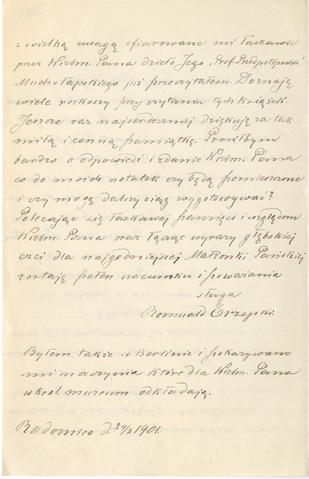 z wielką uwagą ofiarowane mi łaskawie
przez Wielm. Pana dzieło Jego „Prof. Przedpotopowicz"
Muchołapskiego już przeczytałem. Doznaję
wiele roskoszy przy czytaniu tych książek.
Jeszcze raz najserdeczniej dziękuję za tak
miłą i cenną pamiątkę. Prosiłbym
bardzo o odpowiedź i zdanie Wielm. Pana
co do moich notatek czy będą pomieszczone
i czy mogę dalszy ciąg wygotowywać?
Polecając się łaskawej pamięci i względom
Wielm. Pana oraz łącząc wyrazy głębokiej
czci dla najgodniejszej Małżonki Pańskiej
zostaję pełen szacunku i poważania
sługa
Romuald Erzepki.
Byłem także w Berlinie i pokazywano
mi naczynia które dla Wielm. Pana
w król. museum odkładają.
Radomice d. 24/2 1901.